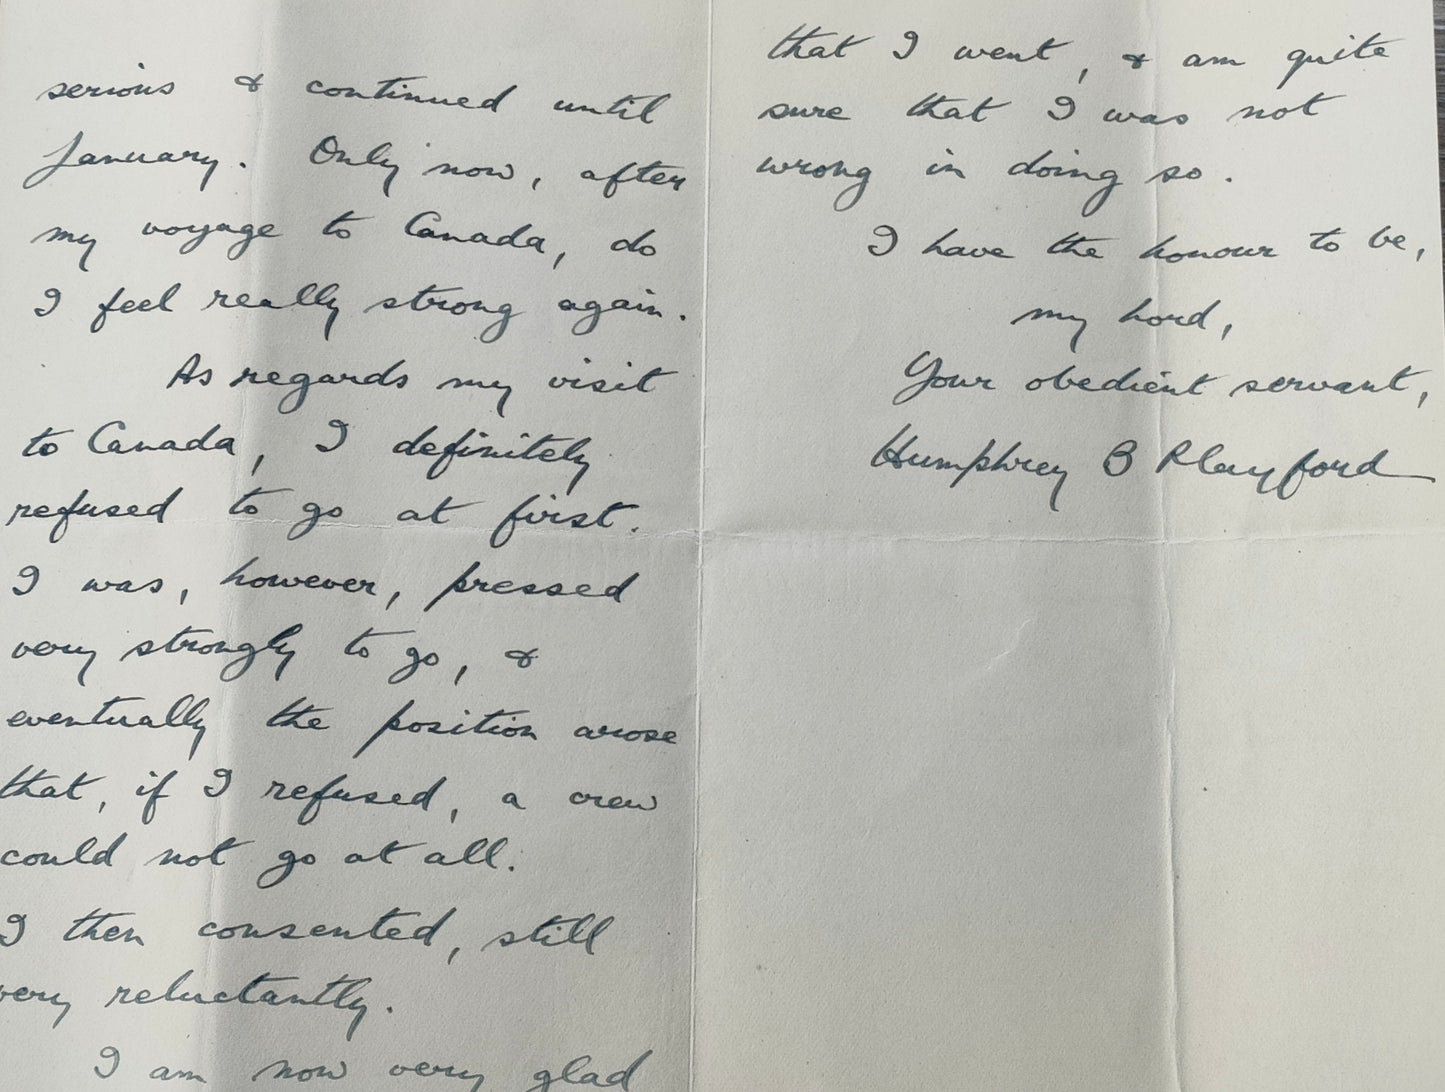 serious & continued until
January. Only now, after
my voyage to Canada, do
I feel really strong again.
As regards my visit
to Canada, I definitely
refused to go at first.
I was, however, pressed
very strongly to go, &
eventually the position arose
that, if I refused, a crew
could not go at all.
I then consented, still
very reluctantly.
I am now very glad
that I went, & am quite
sure that I was not
wrong in doing so.
I have the honour to be,
my Lord,
Your obedient servant,
Humphrey B Playford